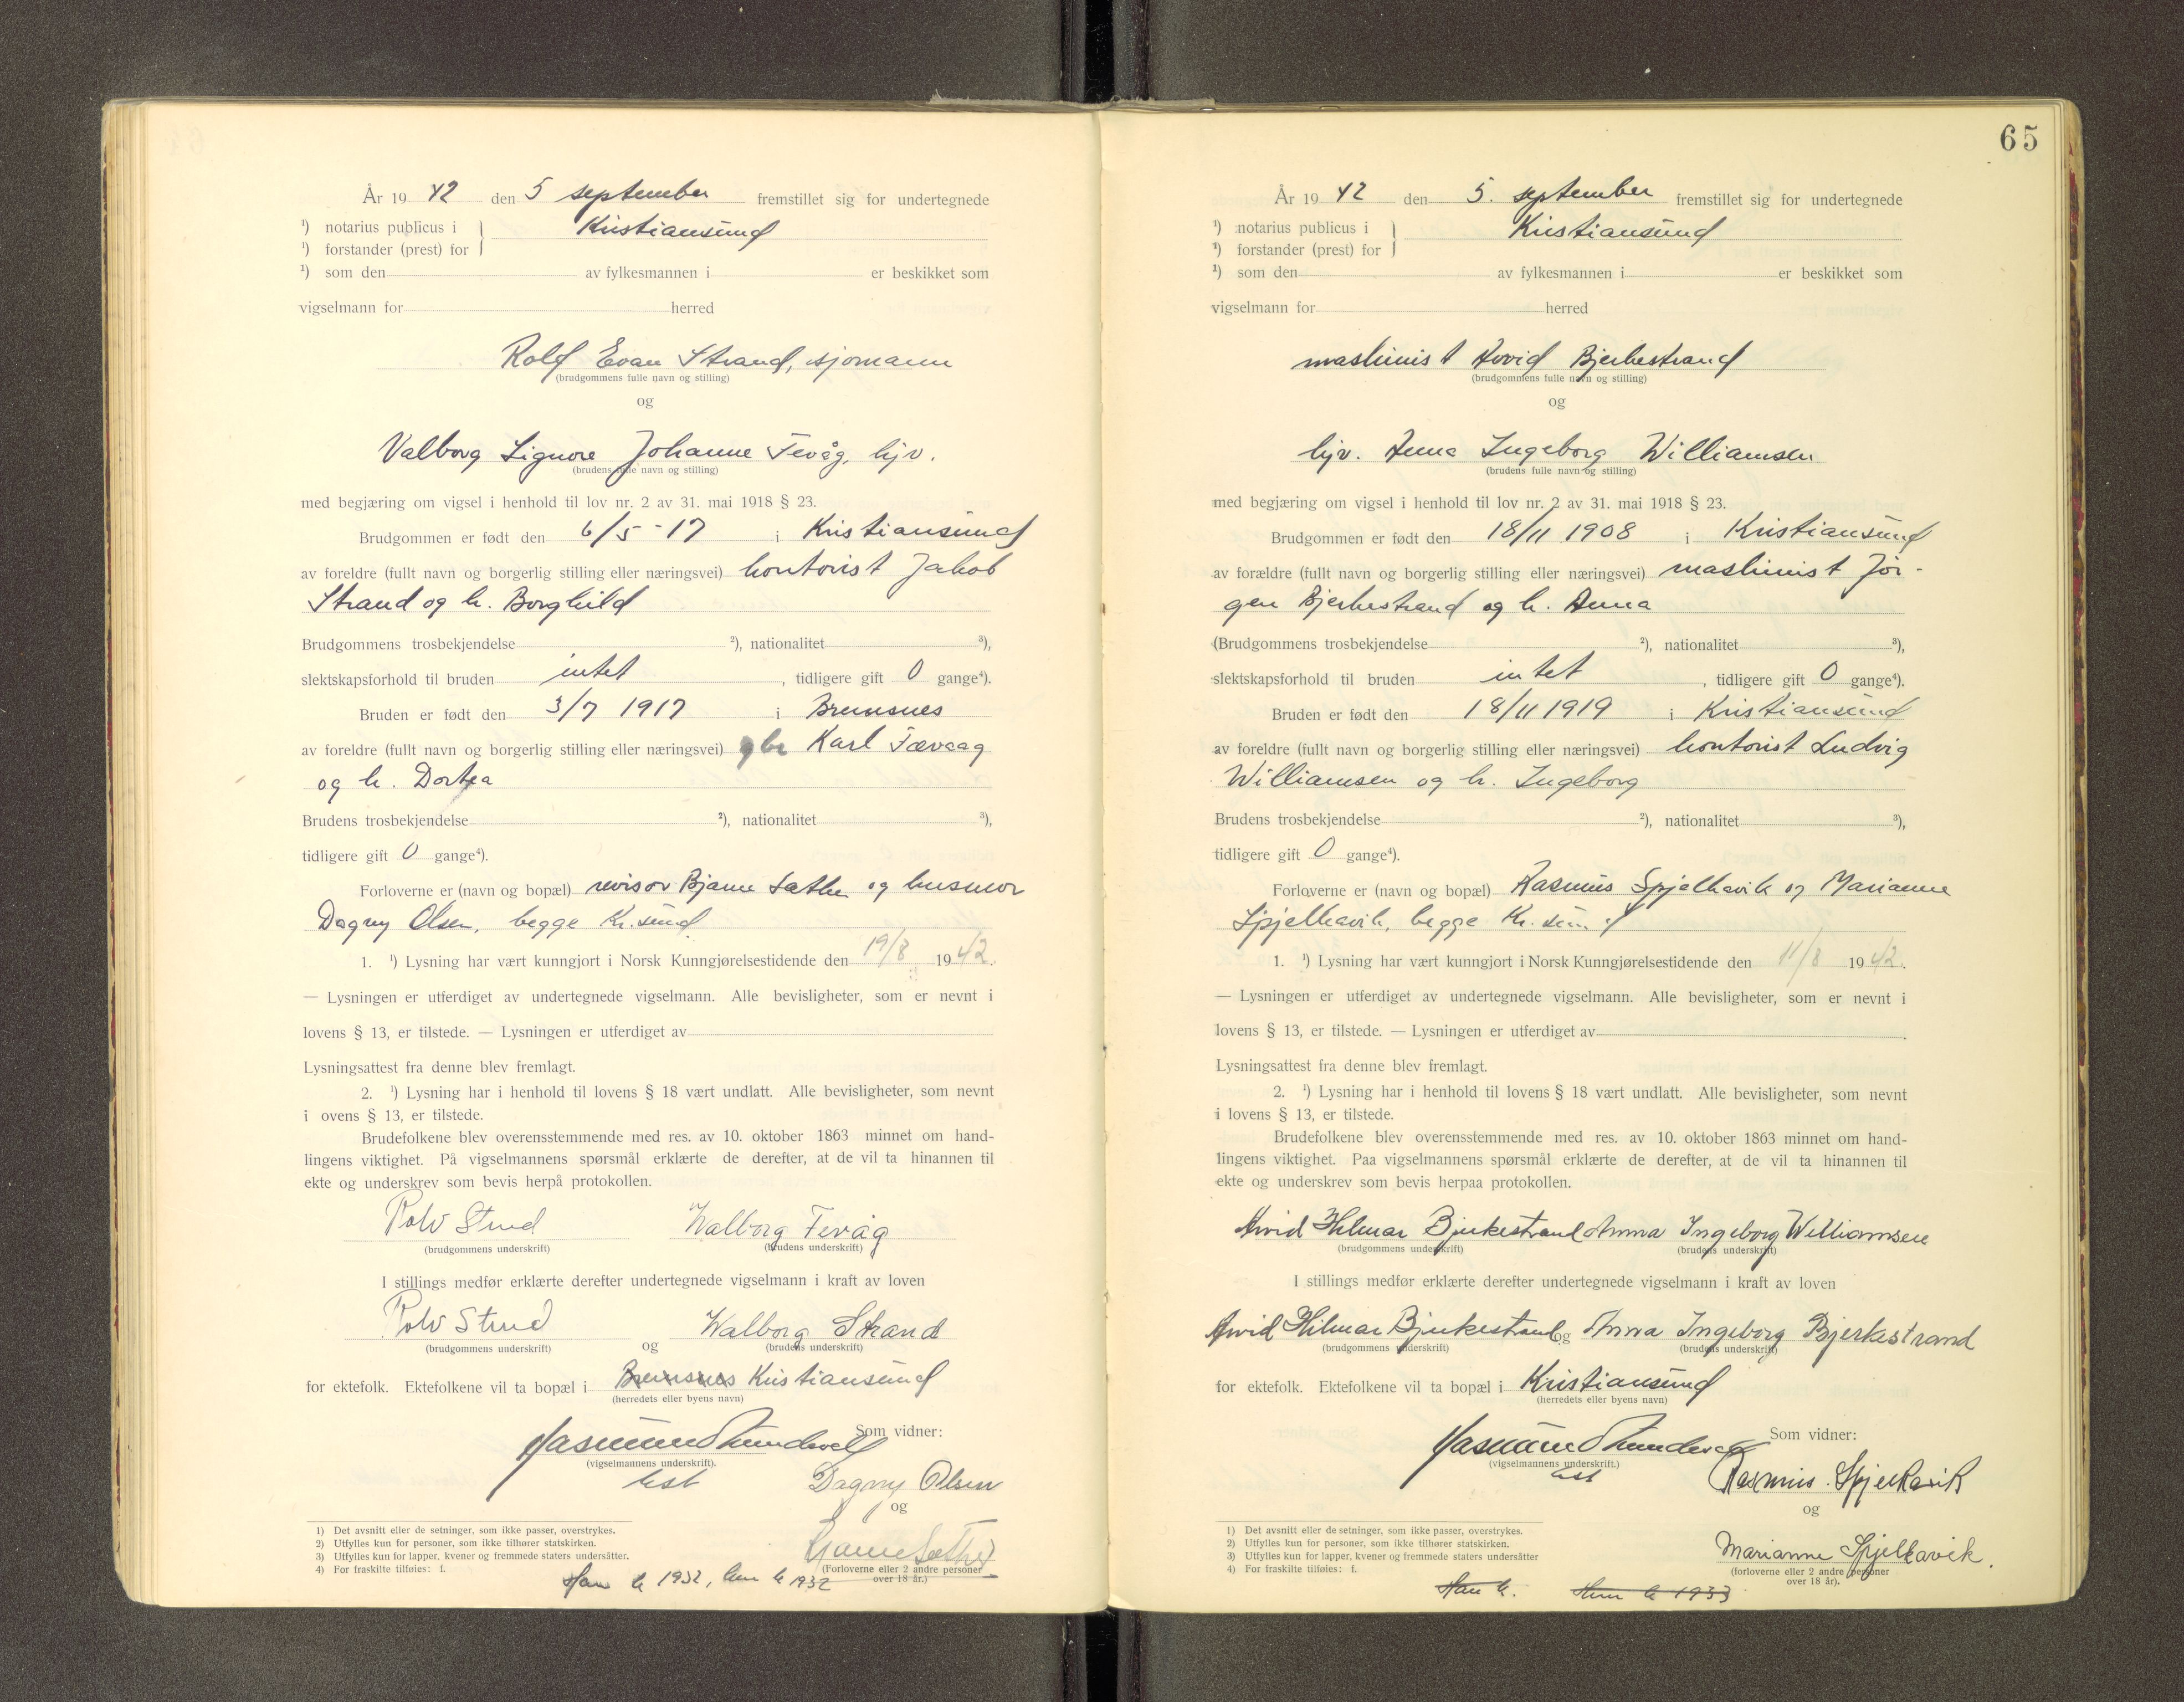 År 19 42 den 5 september fremstillet sig for undertegnede
¹) notarius publicus i } Kristiansund
¹) forstander (prest) for
¹) som den av fylkesmannen i er beskikket som
vigselmann for herred
Rolf Evan Strand, sjømann
(brudgommens fulle navn og stilling)
og
Valborg Signore Johanne Fevåg, hjv.
(brudens fulle navn og stilling)
med begjæring om vigsel i henhold til lov nr. 2 av 31. mai 1918 § 23.
Brudgommen er født den 6/5-17 i Kristiansund
av foreldre (fullt navn og borgerlig stilling eller næringsvei) kontorist Jakob
Strand og h. Borghild
Brudgommens trosbekjendelse ²), nationalitet ³),
slektskapsforhold til bruden intet, tidligere gift 0 gange⁴).
Bruden er født den 3/7 1917 i Bremsnes
av foreldre (fullt navn og borgerlig stilling eller næringsvei) gbr Karl Fævaag
og h. Dortea
Brudens trosbekjendelse ²), nationalitet ³),
tidligere gift 0 gange⁴).
Forloverne er (navn og bopæl) revisor Bjarne Sæther og husmor
Dagny Olsen, begge Kr.sund
1. ¹) Lysning har vært kunngjort i Norsk Kunngjørelsestidende den 19/8 1942.
— Lysningen er utferdiget av undertegnede vigselmann. Alle bevisligheter, som er nevnt i
lovens § 13, er tilstede. — Lysningen er utferdiget av
Lysningsattest fra denne blev fremlagt.
2. ¹) Lysning har i henhold til lovens § 18 vært undlatt. Alle bevisligheter, som nevnt
i ovens § 13, er tilstede.
Brudefolkene blev overensstemmende med res. av 10. oktober 1863 minnet om hand-
lingens viktighet. På vigselmannens spørsmål erklærte de derefter, at de vil ta hinannen til
ekte og underskrev som bevis herpå protokollen.
Rolv Strand Walborg Fevåg
(brudgommens underskrift) (brudens underskrift)
I stillings medfør erklærte derefter undertegnede vigselmann i kraft av loven
Rolv Strand og Walborg Strand
(brudgommens underskrift) (brudens underskrift)
for ektefolk. Ektefolkene vil ta bopæl i Bremsnes Kristiansund
(herredets eller byens navn)
Som vidner:
(vigselmannens underskrift).
Dagny Olsen
og
Bjarne Sæther
(Forloverne eller 2 andre personer
over 18 år.)
1) Det avsnitt eller de setninger, som ikke passer, overstrykes.
2) Utfylles kun for personer, som ikke tilhører statskirken.
3) Utfylles kun for lapper, kvener og fremmede staters undersåtter.
4) For fraskilte tilføies: f.
Han k 1932, hun k 1932
65
År 19 42 den 5. september fremstillet sig for undertegnede
¹) notarius publicus i } Kristiansund
¹) forstander (prest) for
¹) som den av fylkesmannen i er beskikket som
vigselmann for herred
maskinist Arvid Bjerkestrand
(brudgommens fulle navn og stilling)
og
hjv. Anna Ingeborg Williamsen
(brudens fulle navn og stilling)
med begjæring om vigsel i henhold til lov nr. 2 av 31. mai 1918 § 23.
Brudgommen er født den 18/11 1908 i Kristiansund
av forældre (fullt navn og borgerlig stilling eller næringsvei) maskinist Jør-
gen Bjerkestrand og h. Anna
(Brudgommens trosbekjendelse ²), nationalitet ³),
slektskapsforhold til bruden intet, tidligere gift 0 gange⁴).
Bruden er født den 18/11 1919 i Kristiansund
av foreldre (fullt navn og borgerlig stilling eller næringsvei) kontorist Ludvig
Williamsen og h. Ingeborg
Brudens trosbekjendelse ²), nationalitet ³),
tidligere gift 0 gange⁴).
Forloverne er (navn og bopæl) Rasmus Spjelkavik og Marianne
Spjelkavik, begge Kr.sund
1. ¹) Lysning har vært kunngjort i Norsk Kunngjørelsestidende den 11/8 1942.
— Lysningen er utferdiget av undertegnede vigselmann. Alle bevisligheter, som er nevnt i
lovens § 13, er tilstede. — Lysningen er utferdiget av
Lysningsattest fra denne blev fremlagt.
2. ¹) Lysning har i henhold til lovens § 18 vært undlatt. Alle bevisligheter, som nevnt
i lovens § 13, er tilstede.
Brudefolkene blev overensstemmende med res. av 10. oktober 1863 minnet om hand-
lingens viktighet. Paa vigselmannens spørsmål erklærte de derefter, at de vil ta hinannen til
ekte og underskrev som bevis herpaa protokollen.
Arvid Hilmar Bjerkestrand Anna Ingeborg Williamsen
(brudgommens underskrift) (brudens underskrift)
I stillings medfør erklærte derefter undertegnede vigselmann i kraft av loven
Arvid Hilmar Bjerkestrand og Anna Ingeborg Bjerkestrand
(brudgommens underskrift) (brudens underskrift)
for ektefolk. Ektefolkene vil ta bopæl i Kristiansund
(herredets eller byens navn)
Som vidner:
(vigselmannens underskrift.)
Rasmus Spjelkavik
og
Marianne Spjelkavik.
(forloverne eller 2 andre personer
over 18 år).
1) Det avsnitt eller de setninger, som ikke passer, overstrykes.
2) Utfylles kun for personer, som ikke tilhører statskirken.
3) Utfylles kun for lapper, kvener og fremmede staters undersåtter
4) For fraskilte tilføies: f.
Han k. Hun k 1933